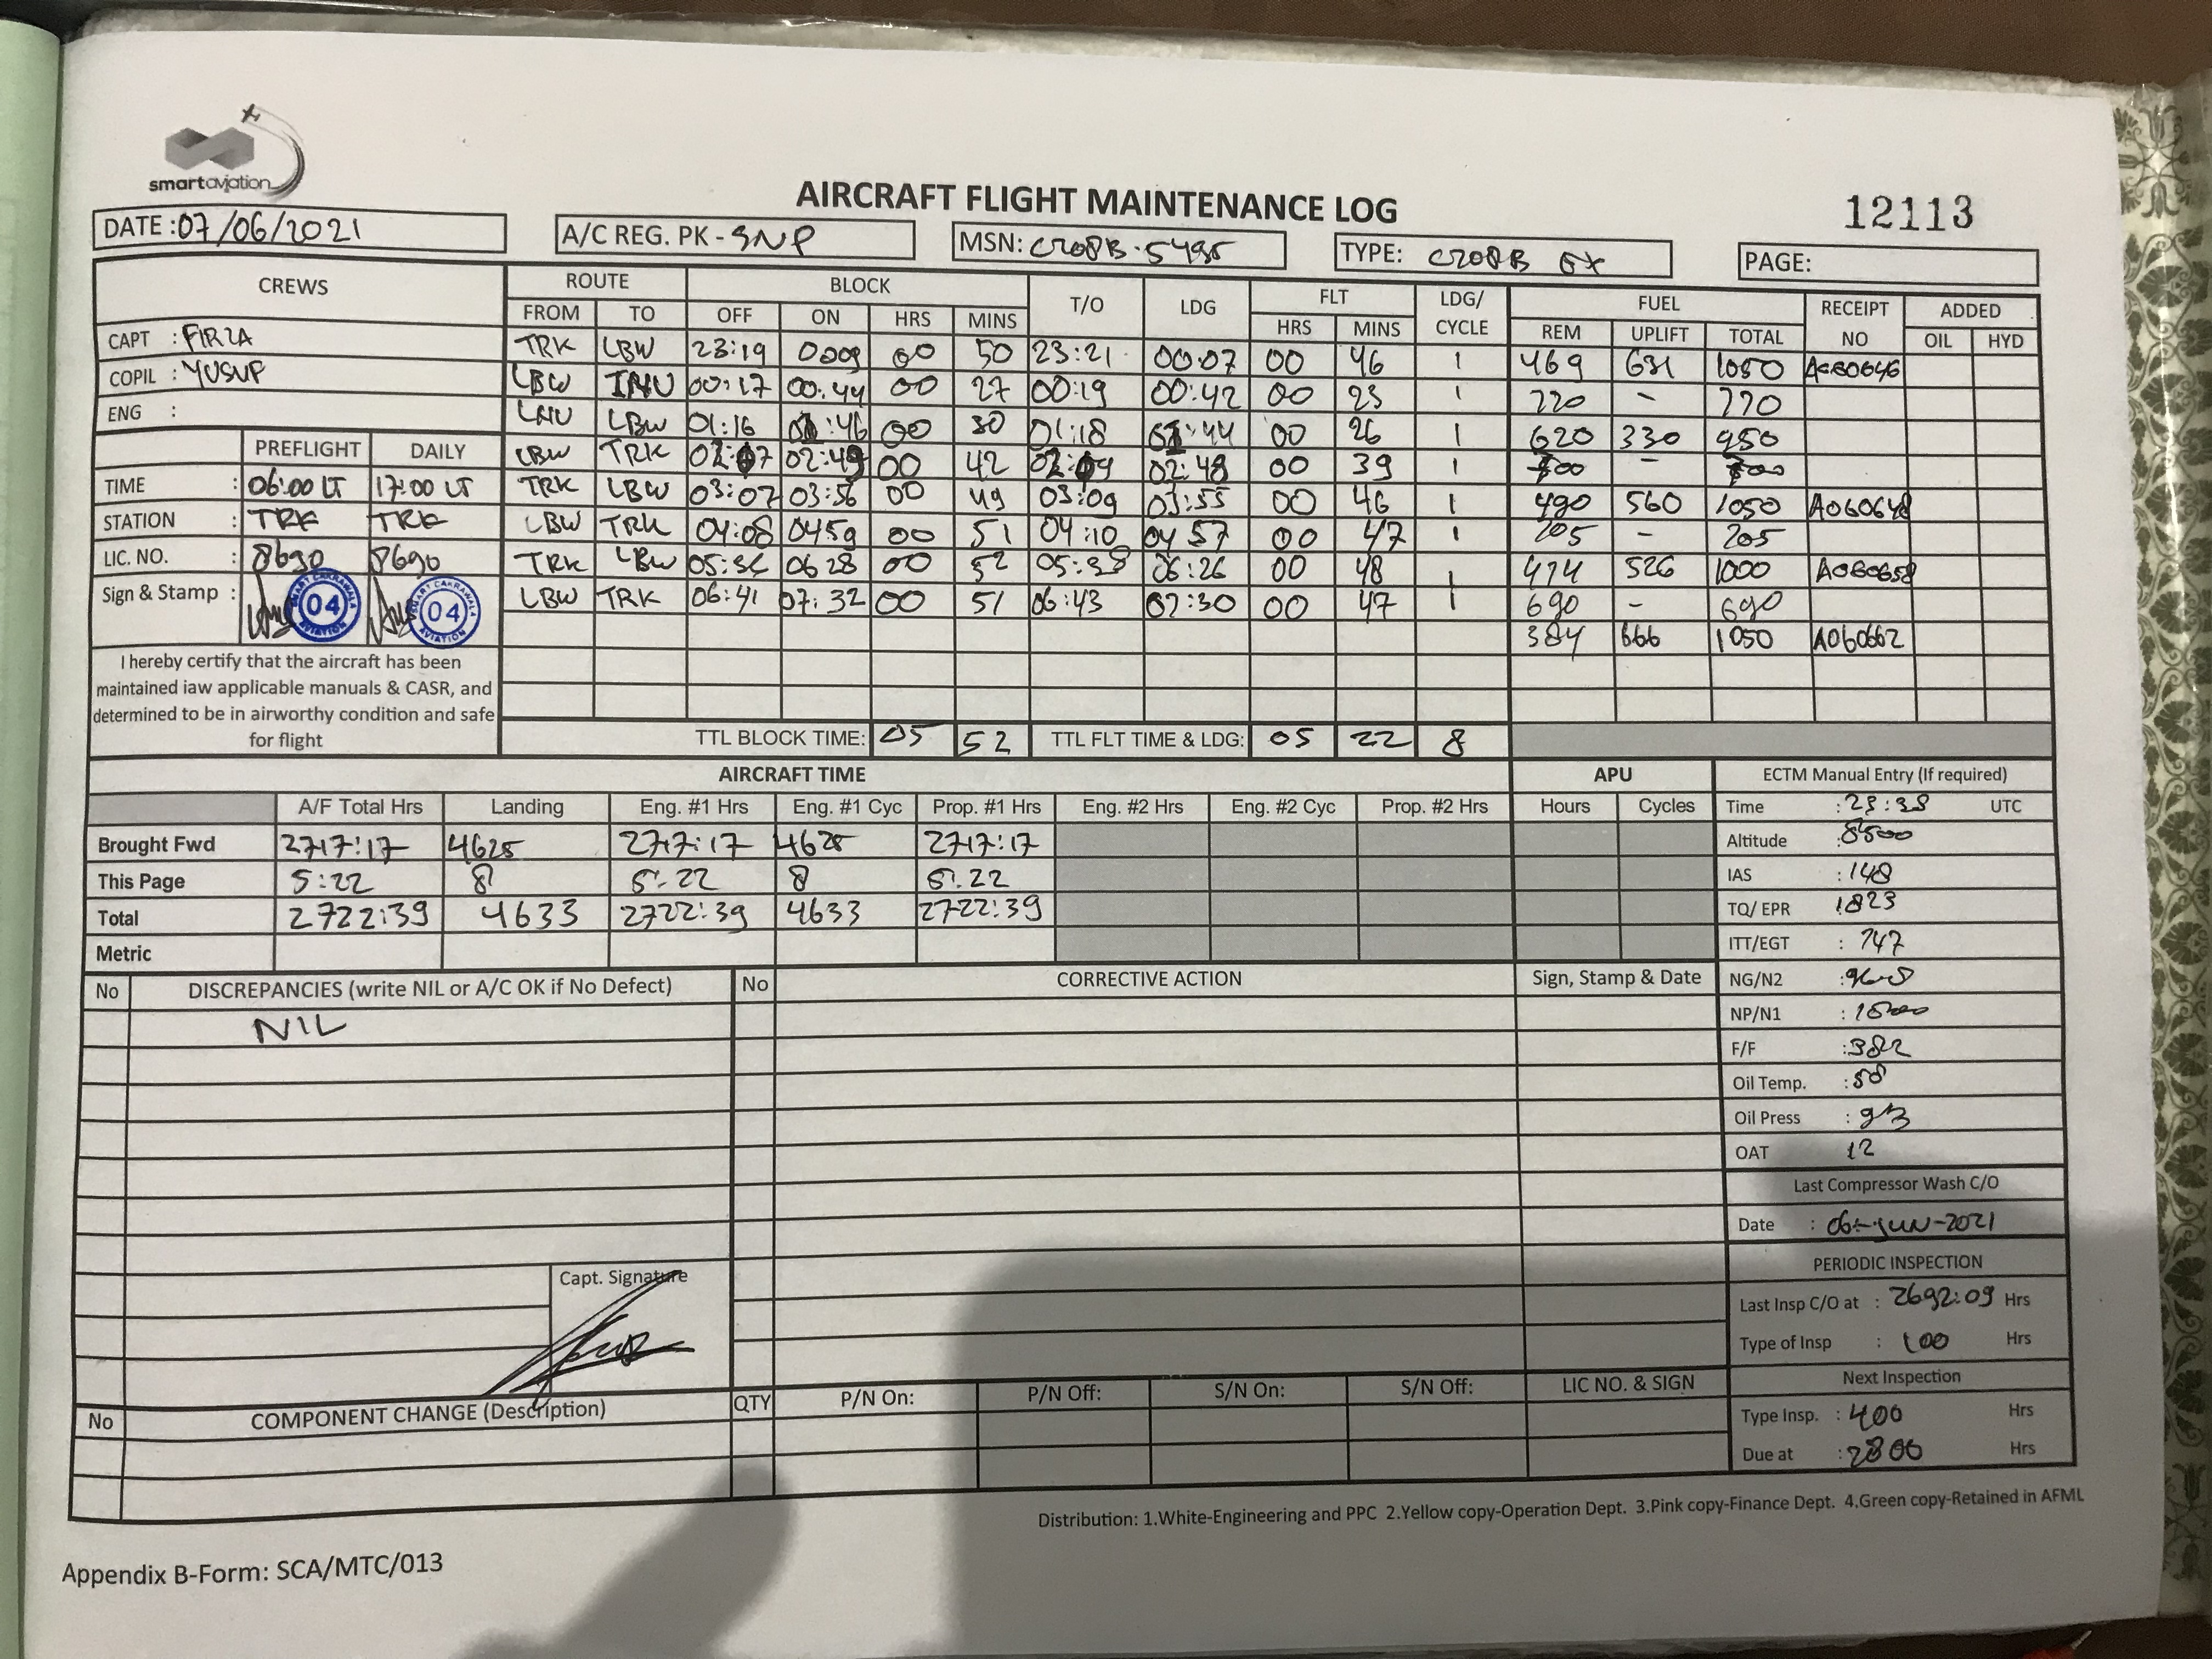 smartaviation
AIRCRAFT FLIGHT MAINTENANCE LOG
12113
DATE :07/06/2021 A/C REG. PK - SNP MSN: C208B-5495 TYPE: C208B EX PAGE:
CREWS ROUTE BLOCK T/O LDG FLT LDG/ CYCLE FUEL RECEIPT NO ADDED
FROM TO OFF ON HRS MINS HRS MINS REM UPLIFT TOTAL OIL HYD
CAPT : FIRZA TRK LBW 23:19 0009 00 50 23:21 00:07 00 46 1 469 631 1050
COPIL : YUSUP LBW 00:17 00:44 00 27 00:19 00:42 00 23 1 -
ENG : LNU LBW 01:16 01:46 00 30 01:18 01:44 00 26 1 620 330 950
PREFLIGHT DAILY LBW TRK 02:07 02:49 00 42 02:09 02:48 00 39 1 -
TIME : 06:00 LT 17:00 LT TRK LBW 03:07 03:56 00 49 03:09 03:55 00 46 1 490 560 1050 A060648
STATION : TRK TRK LBW TRK 04:08 0459 00 51 04:10 04 57 00 47 1 205 - 205
LIC. NO. : 8690 8690 TRK LBW 05:36 0628 00 52 05:38 06:26 00 48 1 474 526 1000 A060658
Sign & Stamp : LBW TRK 06:41 07:32 00 51 06:43 07:30 00 47 1 690 - 690
SMART CAKRAWALA 04 AVIATION SMART CAKRAWALA 04 AVIATION
384 666 1050 A060662
I hereby certify that the aircraft has been
maintained iaw applicable manuals & CASR, and
determined to be in airworthy condition and safe
for flight
TTL BLOCK TIME: 05 52 TTL FLT TIME & LDG: 05 22 8
AIRCRAFT TIME APU ECTM Manual Entry (If required)
A/F Total Hrs Landing Eng. #1 Hrs Eng. #1 Cyc Prop. #1 Hrs Eng. #2 Hrs Eng. #2 Cyc Prop. #2 Hrs Hours Cycles Time :23:38 UTC
Brought Fwd 2717:17 4625 2717:17 4625 2717:17 Altitude :8500
This Page 5:22 8 5:22 8 5:22 IAS : 148
Total 2722:39 4633 2722:39 4633 2722:39 TQ/ EPR :1823
Metric ITT/EGT : 747
No DISCREPANCIES (write NIL or A/C OK if No Defect) No CORRECTIVE ACTION Sign, Stamp & Date NG/N2 :
NIL NP/N1 :
F/F :382
Oil Temp. :58
Oil Press : 93
OAT 12
Last Compressor Wash C/O
Date : 06-JUN-2021
PERIODIC INSPECTION
Capt. Signature
Last Insp C/O at : 2692:09 Hrs
Type of Insp : 100 Hrs
Next Inspection
No COMPONENT CHANGE (Description) QTY P/N On: P/N Off: S/N On: S/N Off: LIC NO. & SIGN
Type Insp. : 400 Hrs
Due at :2800 Hrs
Distribution: 1.White-Engineering and PPC 2.Yellow copy-Operation Dept. 3.Pink copy-Finance Dept. 4.Green copy-Retained in AFML
Appendix B-Form: SCA/MTC/013